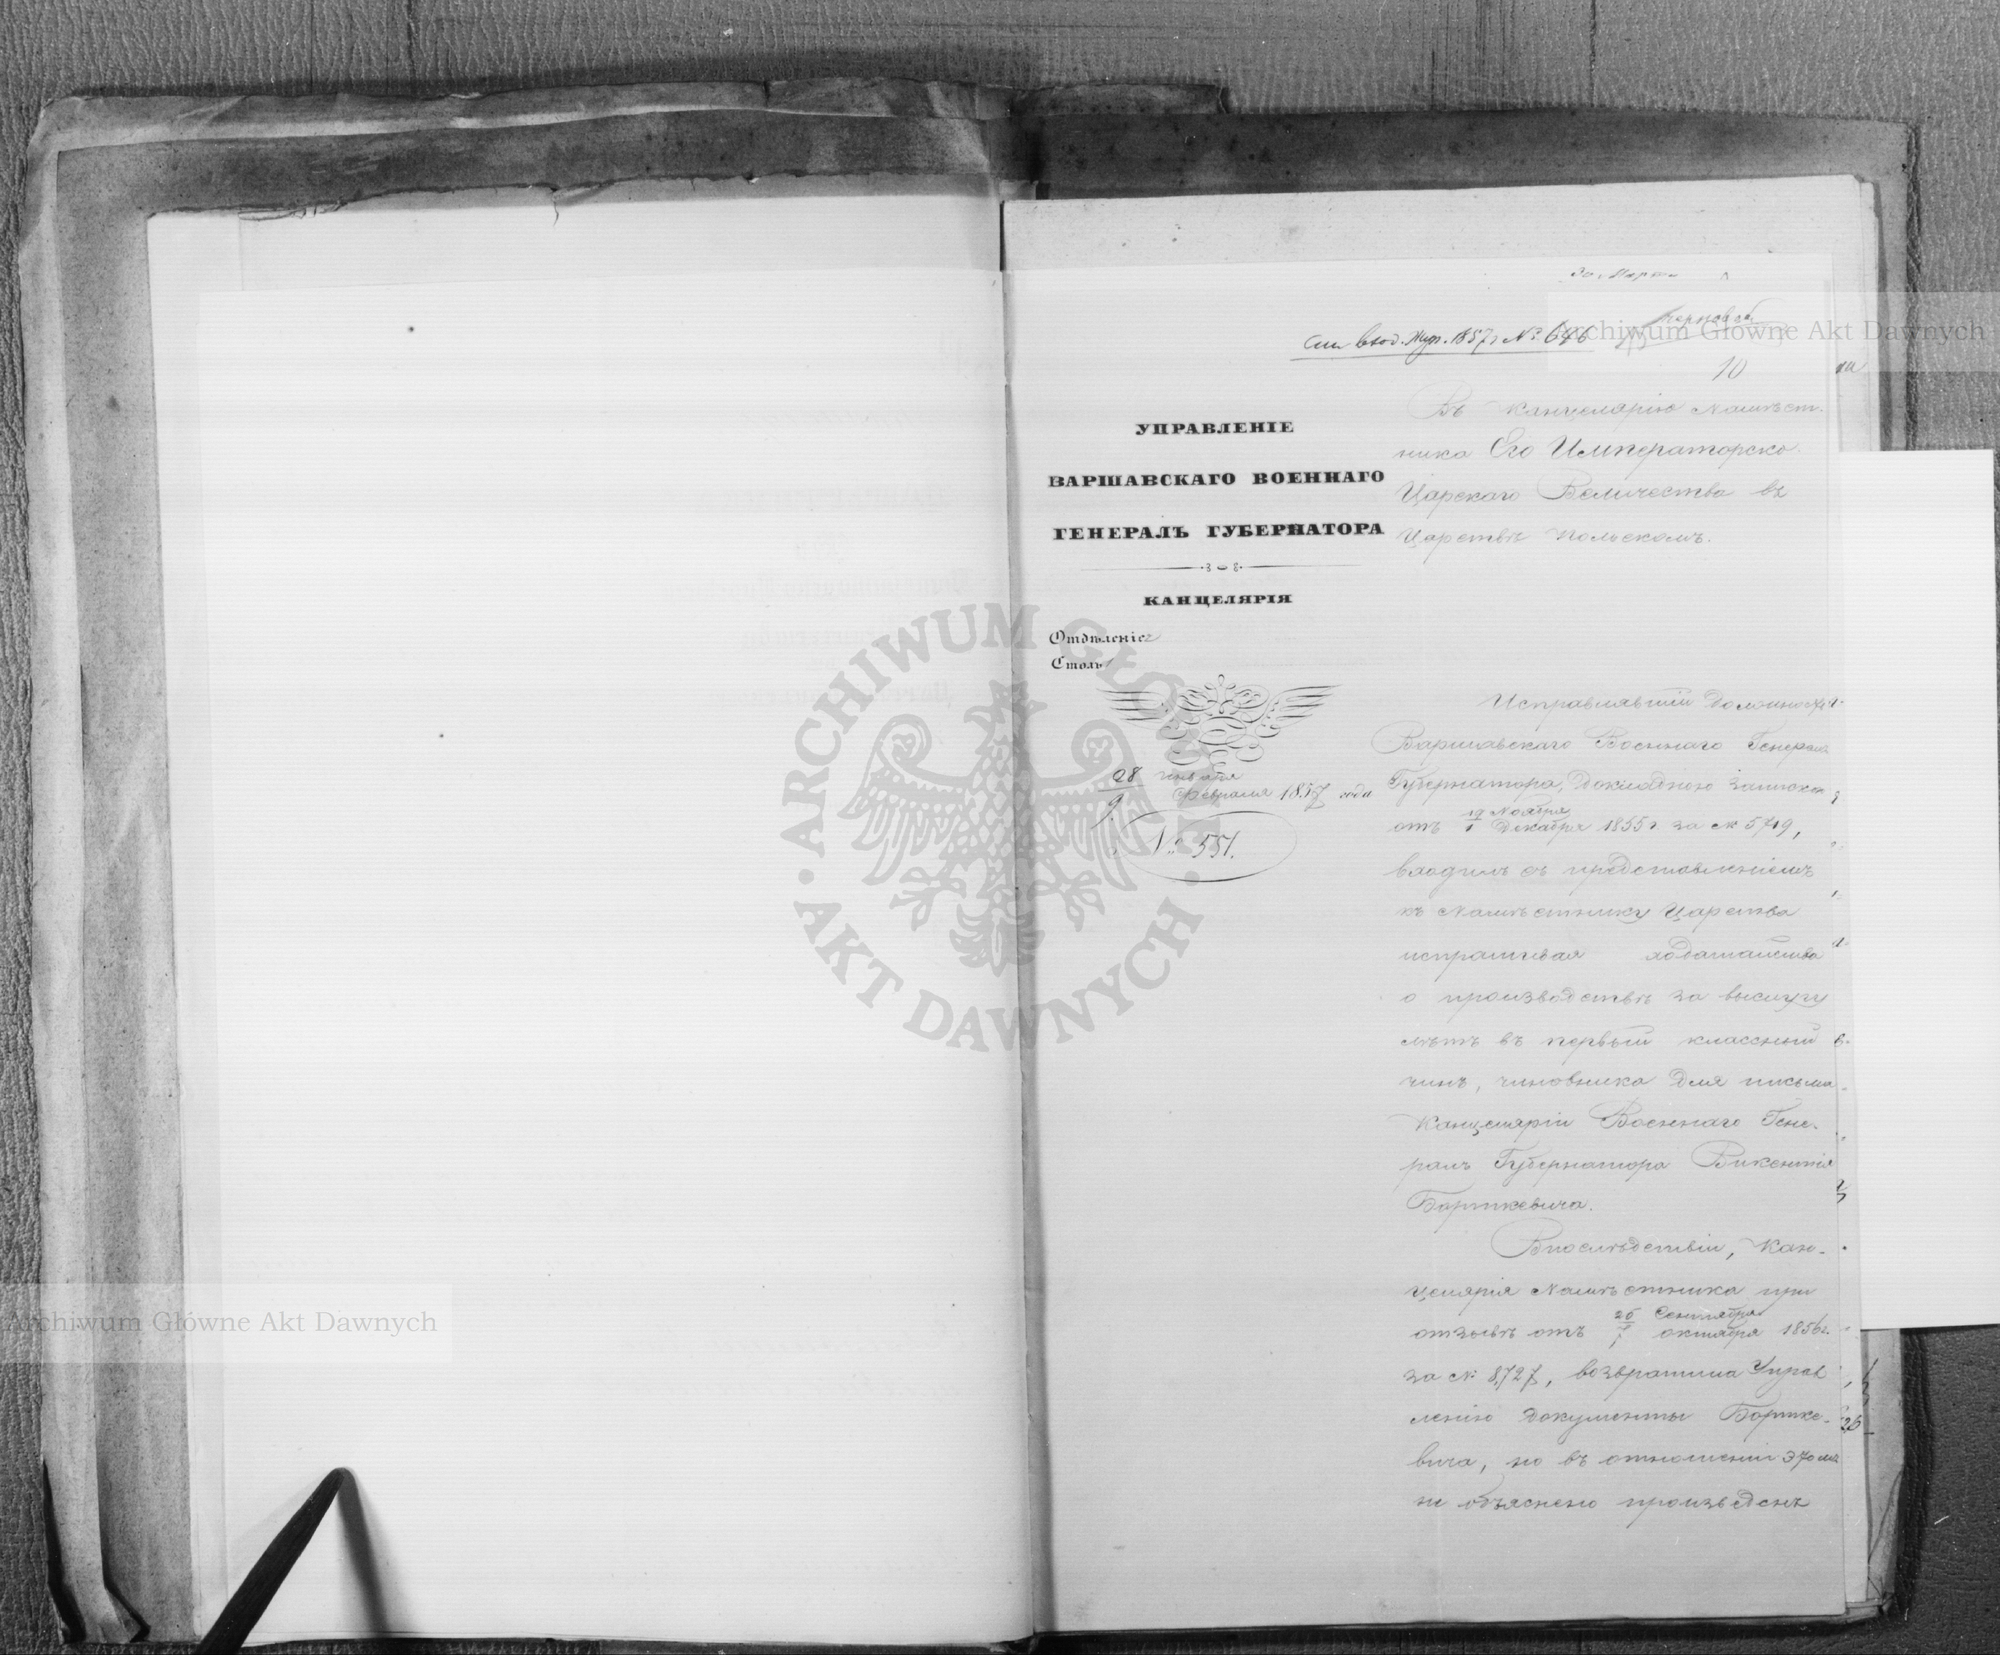 см. вход. Жур. 1857 г. № 646
10
УПРАВЛЕНІЕ
ВАРШАВСКАГО ВОЕННАГО
ГЕНЕРАЛЪ ГУБЕРНАТОРА
КАНЦЕЛЯРІЯ
Отдѣленіе
Столъ 1
28 Января
9 Февраля 1857 года
№ 551.
Въ Канцелярію Намѣст-
ника Его Императорско-
Царскаго Величества въ
Царствѣ Польскомъ.
Исправлявшій Должность
Варшавскаго Военнаго Генералъ
Губернатора, Докладною Запискою
отъ 19 Ноября / 1 Декабря 1855 г. за № 5719,
входилъ съ представленіемъ
къ Намѣстнику Царства
испрашивая ходатайства
о производствѣ за выслугу
лѣтъ въ первый классный
чинъ, чиновника для письма
Канцеляріи Военнаго Гене-
ралъ Губернатора Викентія
Борткевича.
Впослѣдствіи, Кан-
целярія Намѣстника при
отзывѣ отъ 26 Сентября / Октября 1856 г.
за № 8,727, возвратила Управ
ленію документы Бортке-
вича, но въ отношеніи этомъ
не объяснено произведенъ
26
Archiwum Główne Akt Dawnych
Archiwum Główne Akt Dawnych
ARCHIWUM GŁÓWNE AKT DAWNYCH